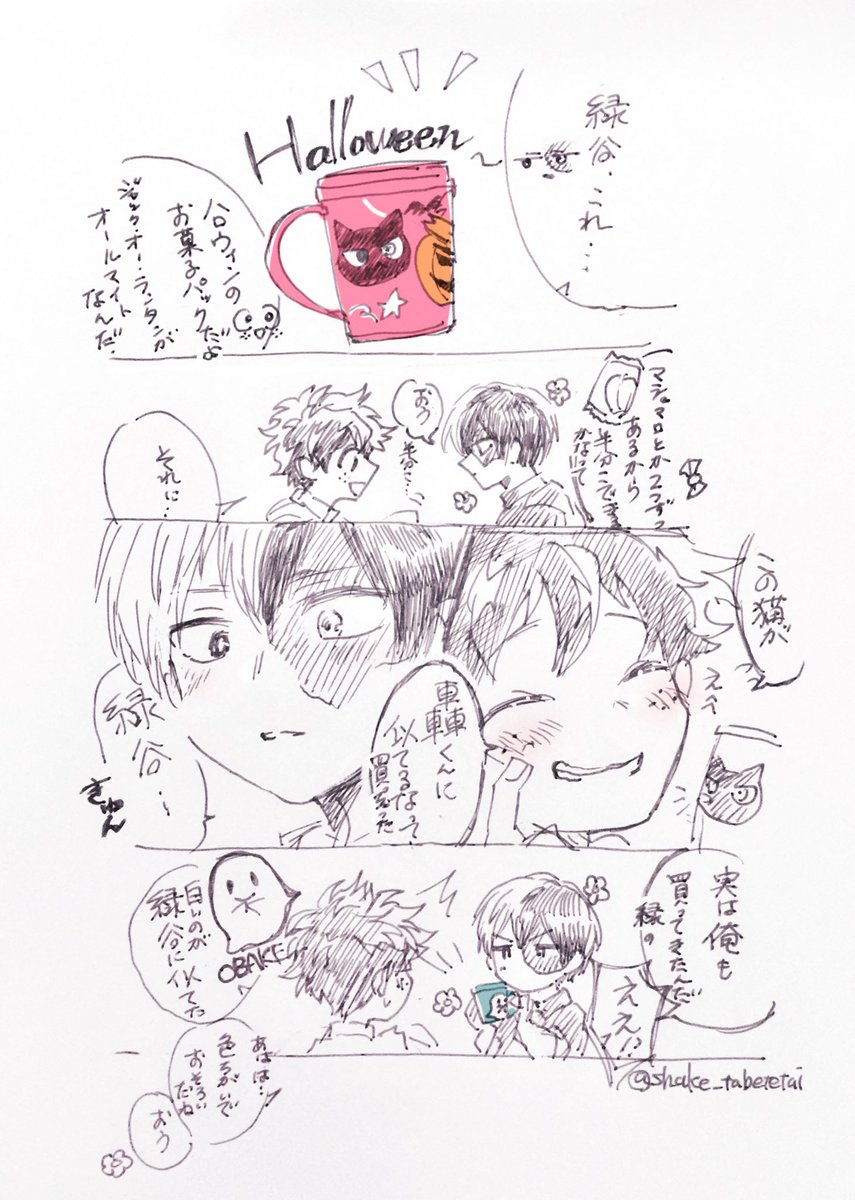 緑谷、これ…
Halloween
ハロウィンの
お菓子パックだよ
ジャック・オー・ランタンが
オールマイト
なんだ。
マシュマロとか2コずつ
あるから
半分こできる
かなって
おう
半分こ…
それに…
この猫が
えへ
轟くんに
似てるなって
買えた
緑谷…
きゅん
実は俺も
買ってきたんだ
緑の
ええ!?
OBAKE
白いのが
緑谷に似てた
あはは…
色ちがいで
おそろい
だね
おう
@shake_taberetai